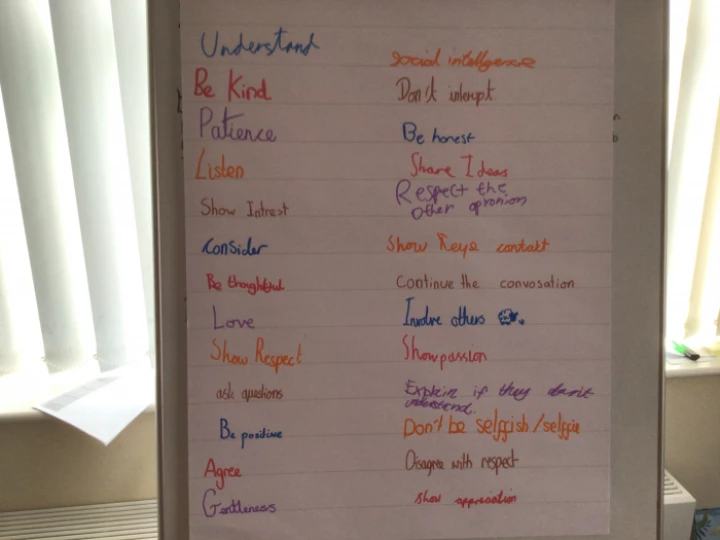 Understand
Be Kind
Patience
Listen
Show Intrest
Consider
Be thoughtful
Love
Show Respect
ask questions
Be positive
Agree
Gentleness
Social intelligence
Don't interupt
Be honest
Share Ideas
Respect the
other opronion
Show eye contact
Continue the convosation
Involve others
Show passion
Explain if they don't
understand.
Don't be selffish/selffie
Disagree with respect
Show appreciation